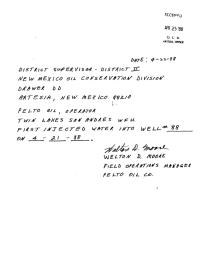 RECEIVED
APR 25 '88
O. C. D.
ARTESIA, OFFICE
DATE: 4-22-88
DISTRICT SUPERVISOR - DISTRICT II
NEW MEXICO OIL CONSERVATION DIVISION
DRAWER DD
ARTESIA, NEW MEXICO 88210
PELTO OIL, OPERATOR
TWIN LAKES SAN ANDRES WFU
FIRST INJECTED WATER INTO WELL # 88
ON 4 - 21 - 88 .
Welton D. Moore
WELTON D. MOORE
FIELD OPERATIONS MANAGER
PELTO OIL CO.